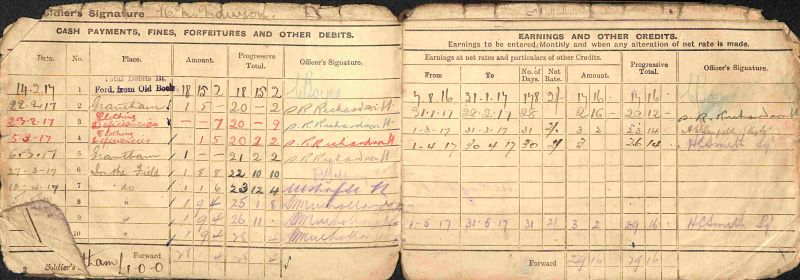 Soldier's Signature
CASH PAYMENTS, FINES, FORFEITURES AND OTHER DEBITS.
Date. No. Place. Amount. Progressive Total. Officer's Signature.
Total Debits Bt.
14.2.17 1 Ford. from Old Book 18 15 2 18 15 2
22.2.17 2 Grantham 1 5 - 20 - 2 S.R. Richardson Lt.
23.2.17 3 Clothing Deficiencies - - 7 20 - 9 S.R. Richardson Lt
5.3.17 4 Clothing Deficiencies 1 5 20 2 2 S.R. Richardson Lt
6.3.17 5 Grantham 1 - - 21 2 2 S.R. Richardson Lt
27-3-17 6 In the Field 1 8 8 22 10 10
7 do 1 1 6 23 12 4
8 " 1 9 4 25 1 8
9 " 1 9 4 26 11
10 " 1 9 4 28
Forward 28 4 28 4
Soldier's
1-0-0
EARNINGS AND OTHER CREDITS.
Earnings to be entered Monthly and when any alteration of net rate is made.
Earnings at net rates and particulars of other Credits.
From To No. of Days. Net Rate. Amount Progressive Total. Officer's Signature.
7.8.16 31.1.17 178 2/- 17 16 17 16
1.2.17 28.2.17 28 2/- 2 16 - 20 12 - S.R. Richardson Lt
1-3-17 31-3-17 31 2/- 3 2 23 14
1-4-17 30 4 17 30 3 26 14 H C Smith
1-5-17 31.5.17 31 2/- 3 2 29 16 H C Smith
Forward 29 16 29 16